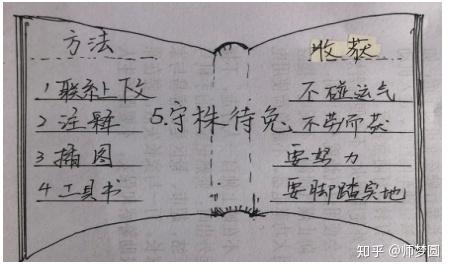 方法
1联系上下文
2注释
3插图
4工具书
5.守株待兔
收获
不碰运气
不劳而获
要努力
要脚踏实地
知乎 @师梦圆